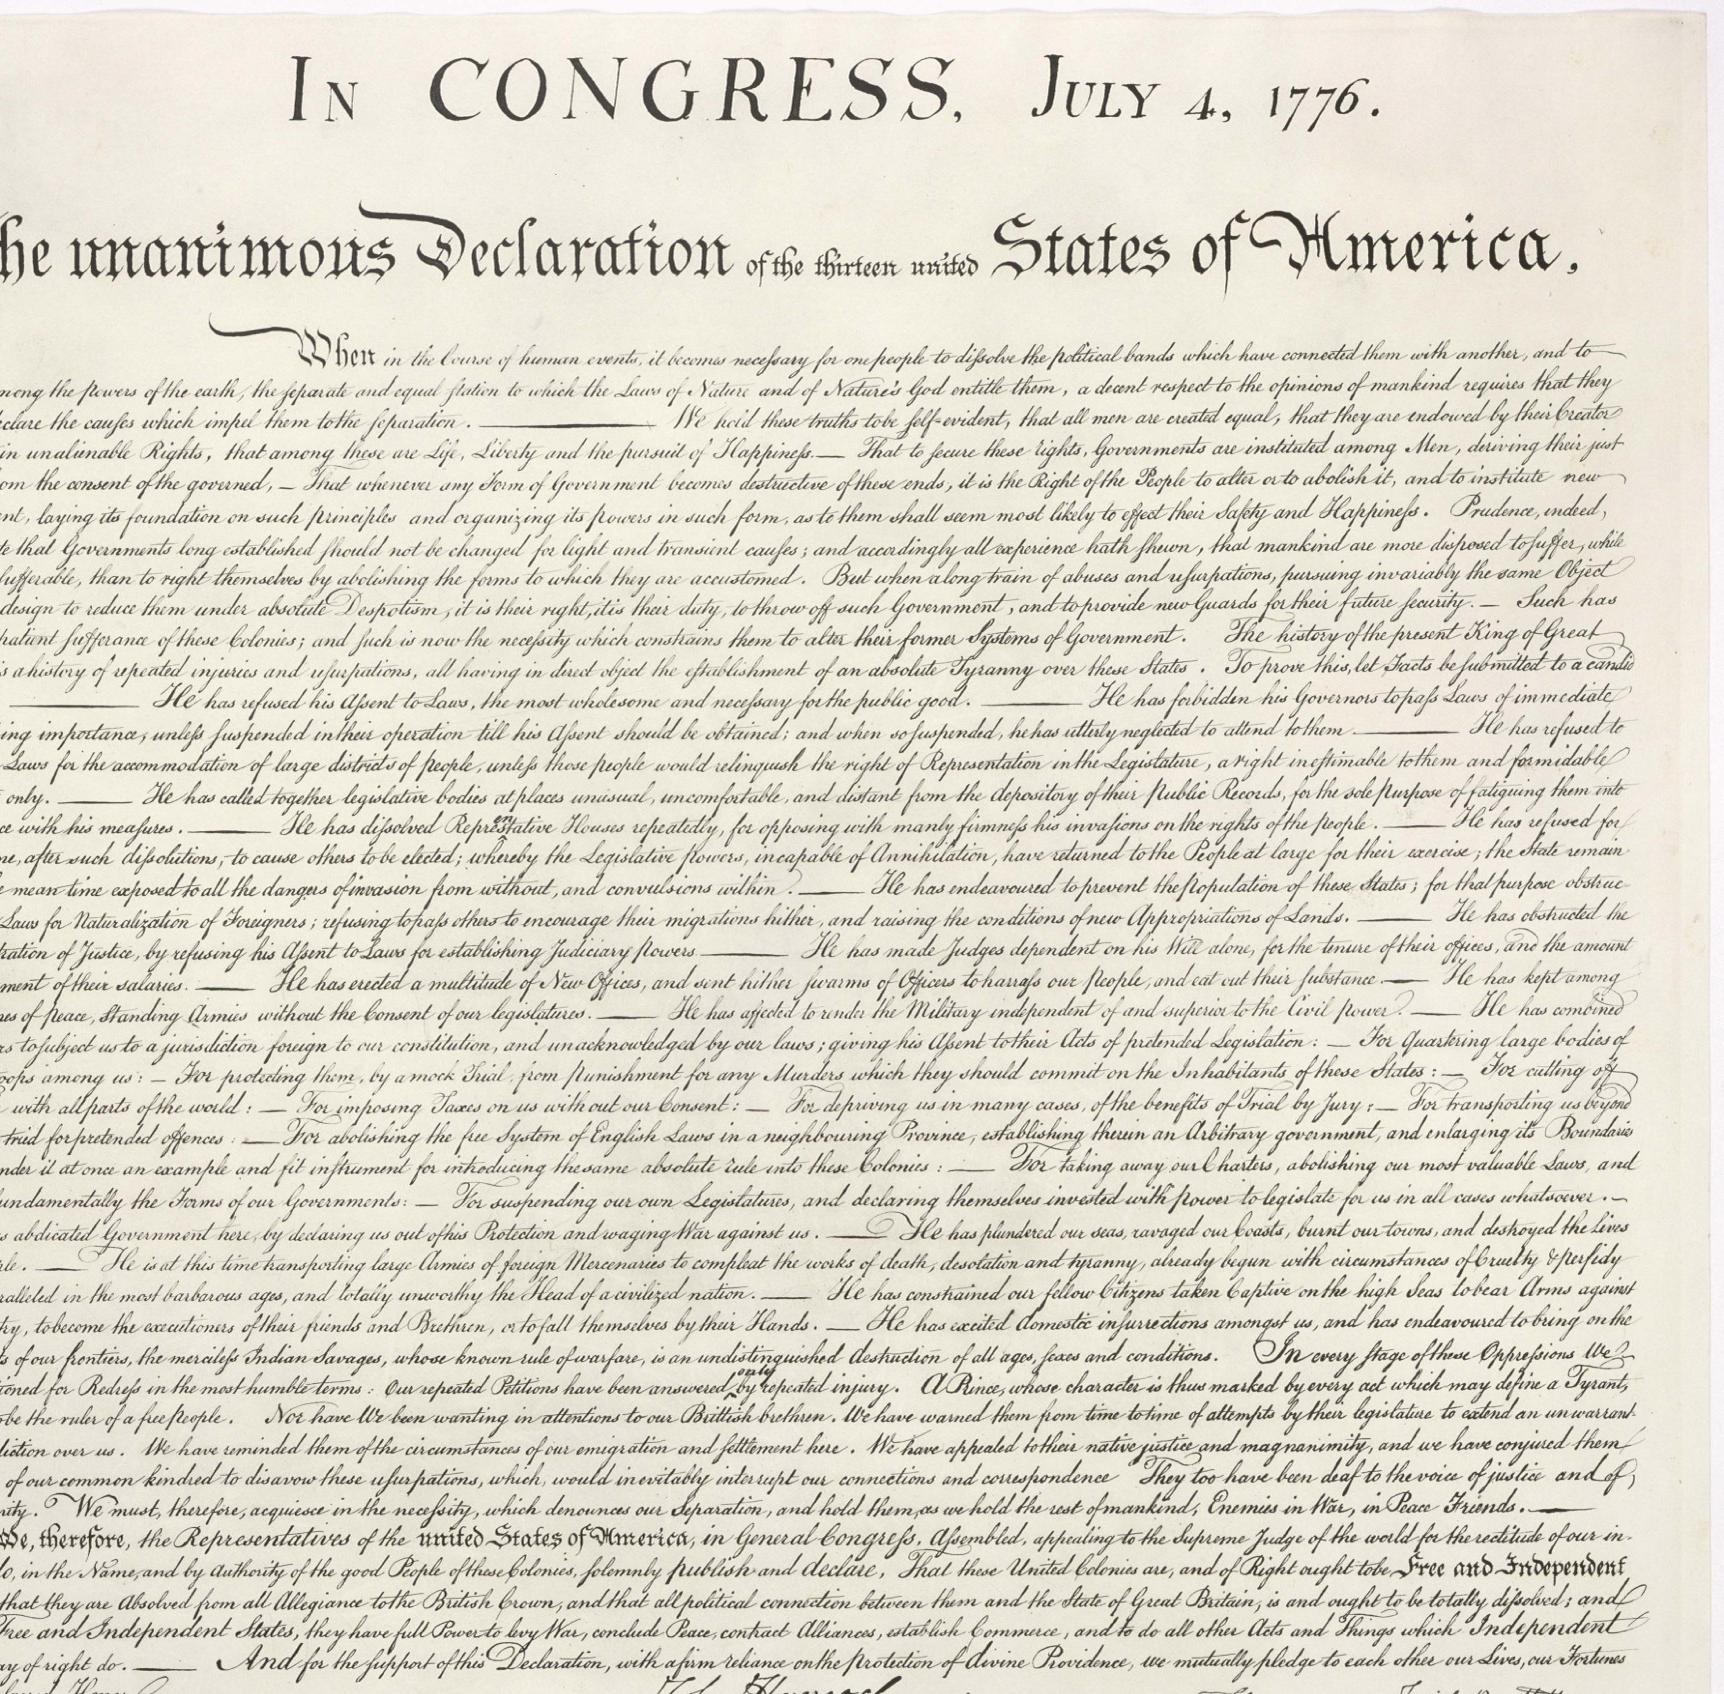 IN CONGRESS, JULY 4, 1776.
he unanimous Declaration of the thirteen united States of America,
When in the Course of human events, it becomes necessary for one people to dissolve the political bands which have connected them with another, and to
mong the powers of the earth, the separate and equal station to which the Laws of Nature and of Nature's God entitle them, a decent respect to the opinions of mankind requires that they
clare the causes which impel them to the separation. — We hold these truths to be self-evident, that all men are created equal, that they are endowed by their Creator
in unalienable Rights, that among these are Life, Liberty and the pursuit of Happiness.— That to secure these rights, Governments are instituted among Men, deriving their just
om the consent of the governed, — That whenever any Form of Government becomes destructive of these ends, it is the Right of the People to alter or to abolish it, and to institute new
ent, laying its foundation on such principles and organizing its powers in such form, as to them shall seem most likely to effect their Safety and Happiness. Prudence, indeed,
te that Governments long established should not be changed for light and transient causes; and accordingly all experience hath shewn, that mankind are more disposed to suffer, while
sufferable, than to right themselves by abolishing the forms to which they are accustomed. But when a long train of abuses and usurpations, pursuing invariably the same Object
design to reduce them under absolute Despotism, it is their right, it is their duty, to throw off such Government, and to provide new Guards for their future security. — Such has
patient sufferance of these Colonies; and such is now the necessity which constrains them to alter their former Systems of Government. The history of the present King of Great
s a history of repeated injuries and usurpations, all having in direct object the establishment of an absolute Tyranny over these States. To prove this, let Facts be submitted to a candid
— He has refused his Assent to Laws, the most wholesome and necessary for the public good. — He has forbidden his Governors to pass Laws of immediate
ing importance, unless suspended in their operation till his Assent should be obtained; and when so suspended, he has utterly neglected to attend to them. — He has refused to
Laws for the accommodation of large districts of people, unless those people would relinquish the right of Representation in the Legislature, a right inestimable to them and formidable
only. — He has called together legislative bodies at places unusual, uncomfortable, and distant from the depository of their Public Records, for the sole purpose of fatiguing them into
ce with his measures. — He has dissolved Representative Houses repeatedly, for opposing with manly firmness his invasions on the rights of the people. — He has refused for
me, after such dissolutions, to cause others to be elected; whereby the Legislative powers, incapable of Annihilation, have returned to the People at large for their exercise; the State remain
e mean time exposed to all the dangers of invasion from without, and convulsions within. — He has endeavoured to prevent the population of these States; for that purpose obstruc-
Laws for Naturalization of Foreigners; refusing to pass others to encourage their migrations hither, and raising the conditions of new Appropriations of Lands. — He has obstructed the
tration of Justice, by refusing his Assent to Laws for establishing Judiciary powers — He has made Judges dependent on his Will alone, for the tenure of their offices, and the amount
ment of their salaries. — He has erected a multitude of New Offices, and sent hither swarms of Officers to harrass our people, and eat out their substance. — He has kept among
mes of peace, Standing Armies without the Consent of our legislatures. — He has affected to render the Military independent of and superior to the Civil power. — He has combined
rs to subject us to a jurisdiction foreign to our constitution, and unacknowledged by our laws; giving his Assent to their Acts of pretended Legislation: — For Quartering large bodies of
oops among us: — For protecting them, by a mock Trial, from punishment for any Murders which they should commit on the Inhabitants of these States: — For cutting off
with all parts of the world: — For imposing Taxes on us without our Consent: — For depriving us in many cases, of the benefits of Trial by Jury: — For transporting us beyond
tried for pretended offences: — For abolishing the free System of English Laws in a neighbouring Province, establishing therein an Arbitrary government, and enlarging its Boundaries
nder it at once an example and fit instrument for introducing the same absolute rule into these Colonies: — For taking away our Charters, abolishing our most valuable Laws, and
undamentally the Forms of our Governments: — For suspending our own Legislatures, and declaring themselves invested with power to legislate for us in all cases whatsoever. —
s abdicated Government here, by declaring us out of his Protection and waging War against us. — He has plundered our seas, ravaged our Coasts, burnt our towns, and destroyed the Lives
ple. — He is at this time transporting large Armies of foreign Mercenaries to compleat the works of death, desolation and tyranny, already begun with circumstances of Cruelty & perfidy
ralleled in the most barbarous ages, and totally unworthy the Head of a civilized nation. — He has constrained our fellow Citizens taken Captive on the high Seas to bear Arms against
try, to become the executioners of their friends and Brethren, or to fall themselves by their Hands. — He has excited domestic insurrections amongst us, and has endeavoured to bring on the
s of our frontiers, the merciless Indian Savages, whose known rule of warfare, is an undistinguished destruction of all ages, sexes and conditions. In every stage of these Oppressions We
ioned for Redress in the most humble terms: Our repeated Petitions have been answered only by repeated injury. A Prince, whose character is thus marked by every act which may define a Tyrant,
be the ruler of a free people. Nor have We been wanting in attentions to our Brittish brethren. We have warned them from time to time of attempts by their legislature to extend an unwarrant-
diction over us. We have reminded them of the circumstances of our emigration and settlement here. We have appealed to their native justice and magnanimity, and we have conjured them
of our common kindred to disavow these usurpations, which, would inevitably interrupt our connections and correspondence They too have been deaf to the voice of justice and of
nity. We must, therefore, acquiesce in the necessity, which denounces our Separation, and hold them, as we hold the rest of mankind, Enemies in War, in Peace Friends. —
We, therefore, the Representatives of the united States of America, in General Congress, Assembled, appealing to the Supreme Judge of the world for the rectitude of our in-
o, in the Name, and by Authority of the good People of these Colonies, solemnly publish and declare, That these United Colonies are, and of Right ought to be Free and Independent
that they are Absolved from all Allegiance to the British Crown, and that all political connection between them and the State of Great Britain, is and ought to be totally dissolved; and
Free and Independent States, they have full Power to levy War, conclude Peace, contract Alliances, establish Commerce, and to do all other Acts and Things which Independent
ay of right do. — And for the support of this Declaration, with a firm reliance on the protection of divine Providence, we mutually pledge to each other our Lives, our Fortunes